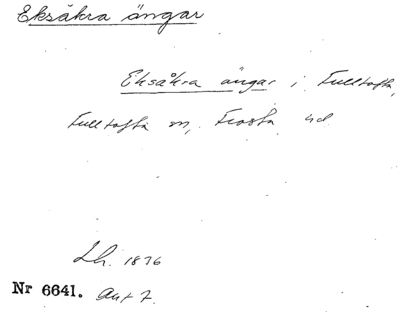 Eksåkra ängar
Eksåkra ängar i Fulltofta,
Fulltofta sn, Frosta hd.
Lh. 1876
Nr 6641. Ant 7.